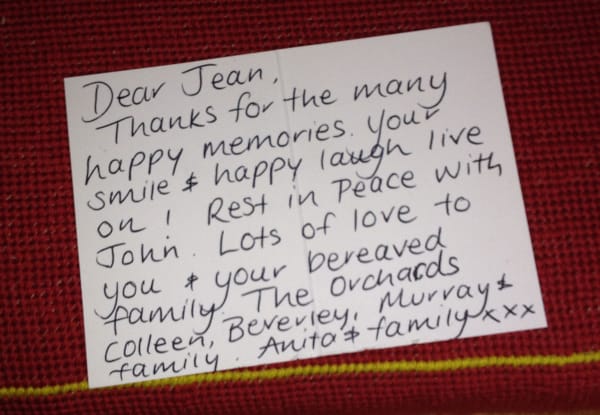 Dear Jean,
Thanks for the many
happy memories. Your
smile & happy laugh live
on! Rest in Peace with
John. Lots of love to
you & your bereaved
family. The Orchards
Colleen, Beverley, Murray &
family. Anita & family xxx